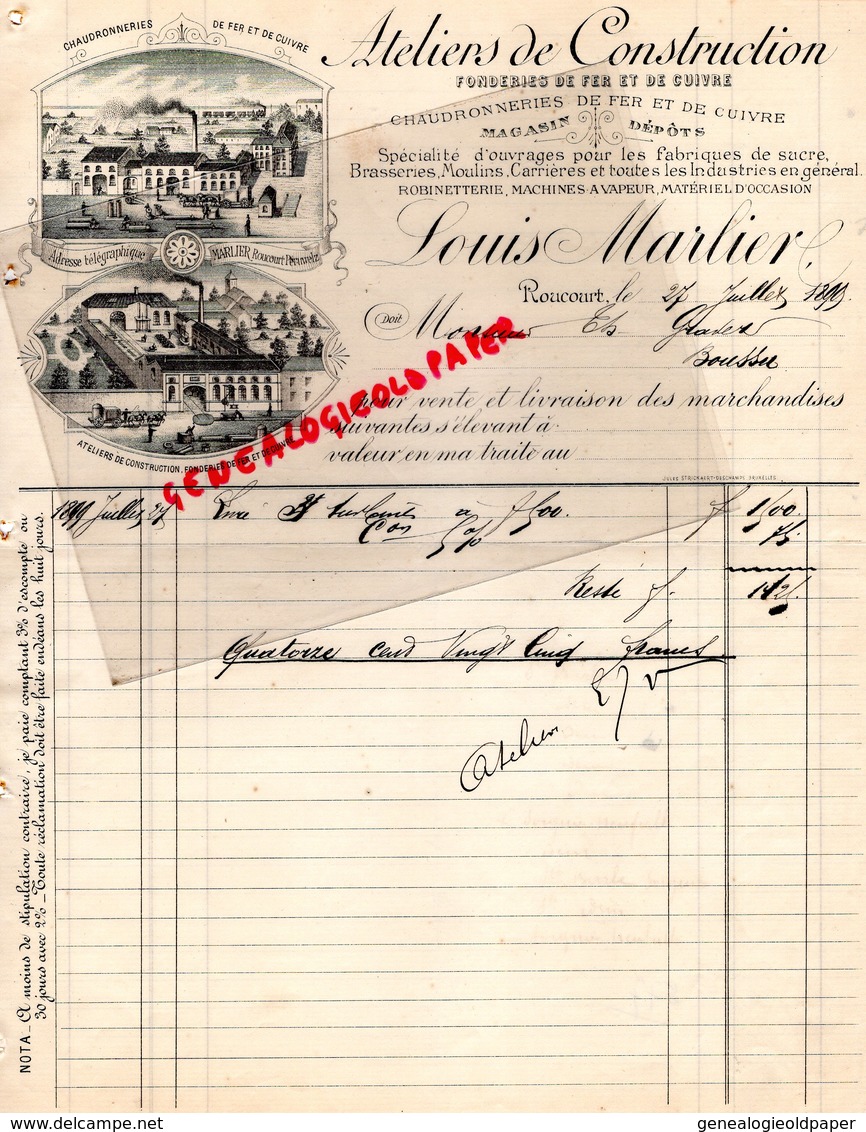 CHAUDRONNERIES DE FER ET DE CUIVRE
Ateliers de Construction
FONDERIES DE FER ET DE CUIVRE
CHAUDRONNERIES DE FER ET DE CUIVRE
MAGASIN DÉPÔTS
Spécialité d'ouvrages pour les fabriques de sucre,
Brasseries, Moulins, Carrières et toutes les Industries en général.
ROBINETTERIE, MACHINES A VAPEUR, MATÉRIEL D'OCCASION
Adresse télégraphique MARLIER Roucourt-Péruwelz
Louis Marlier
Roucourt, le 27 Juillet 1899
Doit Monsieur
Boussu
pour vente et livraison des marchandises
suivantes s'élevant à
valeur en ma traite au
ATELIERS DE CONSTRUCTION, FONDERIES DE FER ET DE CUIVRE
GENEALOGIEOLDPAPER
JULES STRICKAERT-DESCHAMPS BRUXELLES
1899 Juillet 27 à f 1500. f 1500
5% 75
Reste f. 1425
Quatorze cent Vingt Cinq francs
Atelier
NOTA _ A moins de stipulation contraire, je paie comptant 3% d'escompte ou
30 jours avec 2% _ Toute réclamation doit être faite endéans les huit jours.
www.delcampe.net
genealogieoldpaper